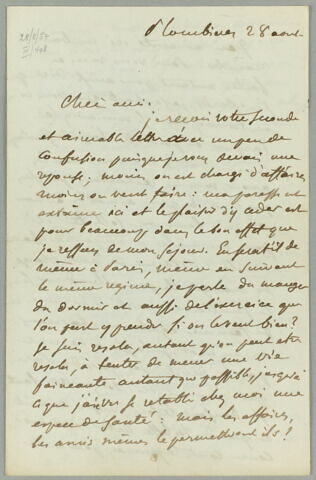 28/8/57
Plombières 28 août
Cher ami.
je reçois votre seconde
et aimable lettre avec un peu de
confusion puisque je vous devais une
réponse; moins on est chargé d'affaires,
moins on veut faire: ma paresse est
extrême ici et le plaisir d'y céder est
pour beaucoup dans le bon effet que
je ressens de mon séjour. En serait il de
même à Paris, même en suivant
le même régime, je parle du manger
du dormir et aussi de l'exercice que
l'on peut y prendre si on le veut bien?
Je suis résolu, autant qu'on peut être
résolu, à tenter de mener une vie
fainéante autant que possible, jusqu'à
ce que j'aie vu se rétablir chez moi une
espèce de santé: mais les affaires,
les amis mêmes le permettront ils?